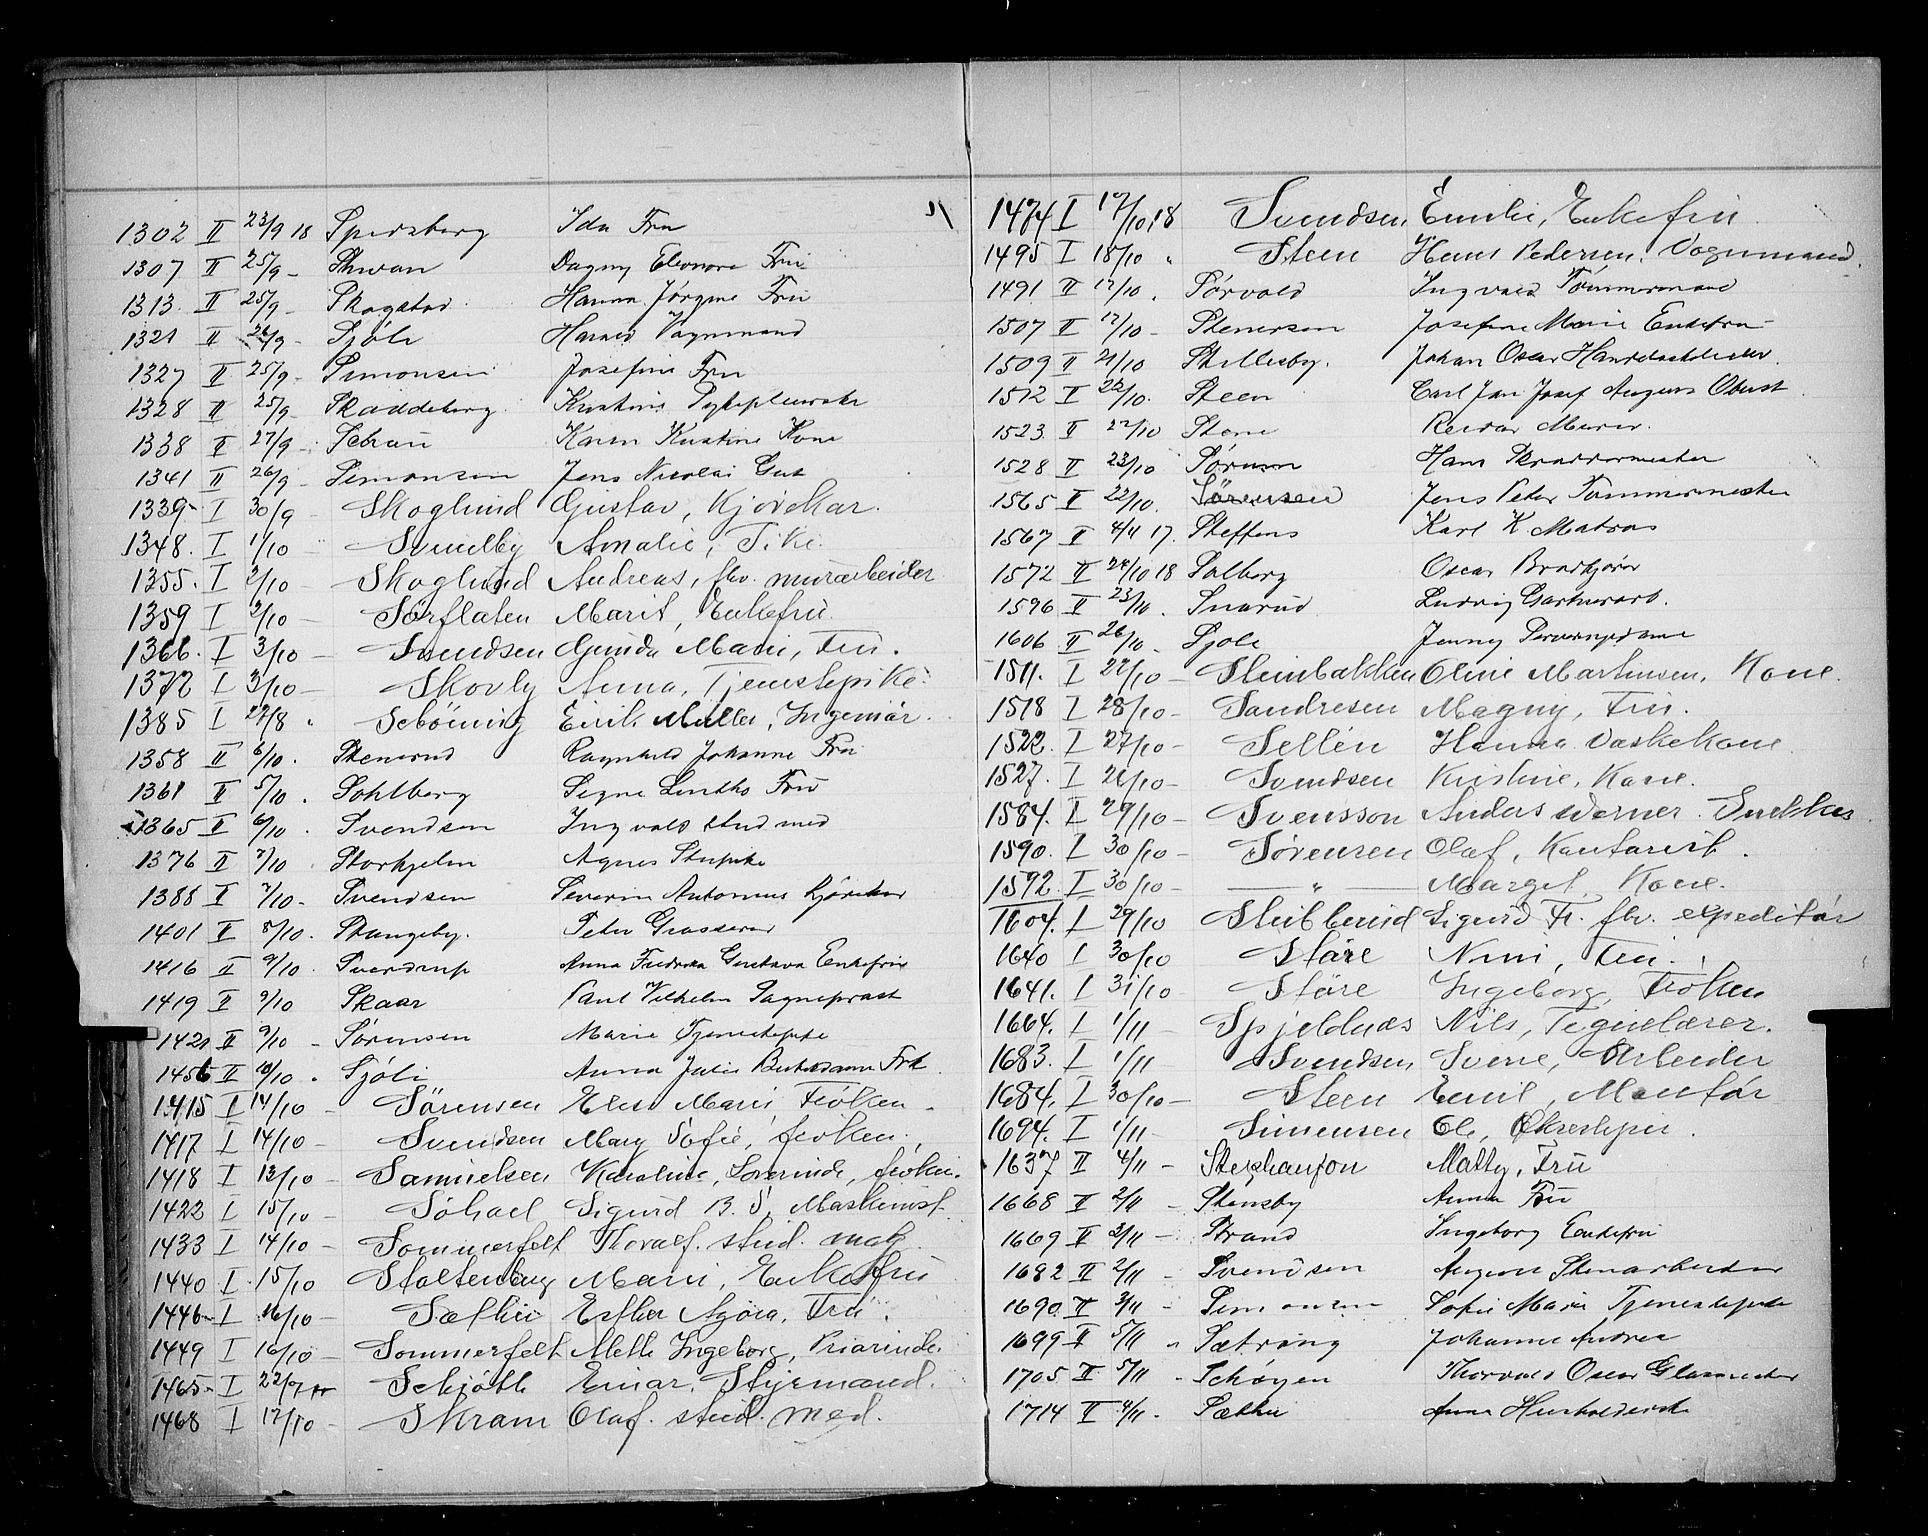 1302 II 23/9 18 Spersberg Ida Fru
1307 II 25/9 - Skwan Dagny Eleonora Fru
1313. II 25/9 - Skogstad. Hanna Jörgine Fru
1321 II 26/9 - Sjöli Harald Vognmand
1327 II 25/9 - Simonsen Josefine Fru
1328 II 25/9 - Skaddeberg. Kristine
1338 II 27/9 - Schau Karen Kristine Kone
1341 II 26/9 - Simonsen Jens Nicolai Gut
1339 - I 30/9 - Skoglund Gustav, Kjörekar.
1348. I 1/10 - Svindby Amalie, Pike.
1355. I 2/10 - Skoglund Andreas, fhv. murarbeider
1359 I 2/10 - Sörflaten Marit, Enkefru.
1366. I 3/10 - Svendsen Gunda Marie, Fru.
1372 I 3/10 - Skovly Anna, Tjenstepike.
1385 I 27/8 " Schöning Eirik Müller, Ingeniör.
1358 II 6/10. Stenerud Ragnhild Johanne Fru
1361 II 5/10. Sohlberg Signe Fru
1365 II 6/10. Svendsen Ingvald stud med
1376 II 7/10. Storhjelm Agnes
1388 I 7/10 - Svendsen Severin Antonius Kjörekar
1401 II 8/10. Stangeby. Peter Grosserer
1416 II 9/10. Sverdrup Anna Fredrikа Gustava Enkefru
1419 II 9/10 Skaar Paul Vilhelm Sogneprast
1421 II 9/10 - Sörensen Marie Tjenestepike
1456 II 10/10. Sjöli Anna Julie Frk
1415 I 14/10 - Sörensen Elise Marie, Fröken.
1417 I 14/10 - Svendsen Mary Sofie, fröken.
1418 I 13/10 - Samuelsen Karoline, Lovrinde, fröken.
1422 I 15/10 - Söhoel Sigurd B. S, Maskinist.
1433 I 14/10 - Sommerfelt Thoralf. stud. mag.
1440 I 15/10 Stoltenberg Marie, Enkefru
1446 - I 16/10 - Sæther Esther Agöra, Fru.
1449 I 16/10 - Sommerfelt Mette Ingeborg, Priorinde.
1465 - I 22/9 Schjöth Einar, Styrmand.
1468 I 17/10 Skram Olaf. stud. med.
1474 I 17/10 18 Svendsen, Emilie, Enkefru
1495 I 18/10 " Steen Hans Pedersen, Vognmand.
1491 II 17/10. Sörvold Ingvald Tömmermand
1507 II 17/10 - Stenersen Josefine Marie Enkefru
1509 II 21/10 Skillesby. Johan Oscar
1512 I 22/10. Steen Carl Jan Josef August Oberst
1523 II 22/10 Stene Reidar Murer.
1528 II 23/10 Sörum Hans Skraddermester
1565 II 22/10. Sörensen Jens Peter Tömmermester
1567 II 4/11 17. Steffens Karl K. Matros
1572 II 24/10 18 Solberg Oscar Brodkjörer
1596 II 23/10. Snarud Ludvig Gartnerarb.
1606 II 26/10. Sjöli Jenny
1511. I 22/10 - Steinbakken Oline Martinsen, Kone.
1518 I 28/10 - Sandresen Magny, Fru.
1522. I 27/10 - Sellén Hanna Vaskekone.
1527. I 26/10 - Svendsen Kristine, Kone.
1584. I 29/10 - Svensson Anders Werner. Snekker.
1590. I 30/10 - Sörensen Olaf, Kontorist.
1592. I 30/10 - — " — Margit, Kone.
1604. I 29/10 Stubberud Sigurd Fr. fhv. expeditör
1640 I 30/10 Störe Nini, Fru.
1641. I 31/10 - Störe Ingeborg, Fröken
1664. I 1/11 - Spjeldnæs Nils, Tegnelærer.
1683. I 1/11 Svendsen, Sverre, Arbeider
1684. I 30/10 - Steen Emil, Montör
1694. I 1/11 - Simensen Ole,
1637 II 4/11 - Stephanson Matty, Fru
1668 II 2/11 - Stensby Anna Fru
1669 II 2/11 - Strand Ingeborg Enkefru
1682 II 2/11 - Svendsen August Stenarbeider
1690 II 3/11 - Simonsen Sofie Marie Tjenestepike
1699 II 5/11 " Sætrang Johanne Andrea
1705 II 5/11 - Schöyen Thorvald Oscar Glasmester
1714 II 4/11. Sæther Anna Husholderske